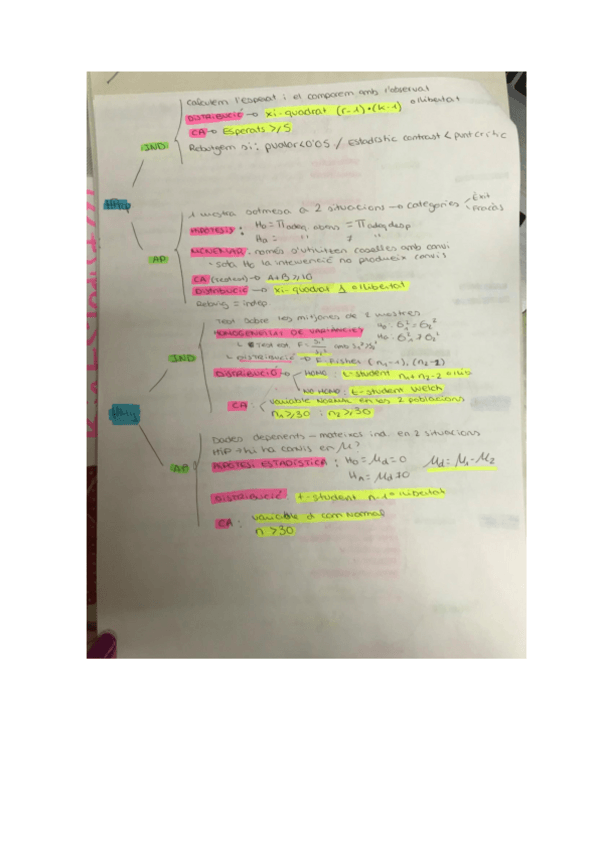 Calculem l'esperat i el comparem amb l'observat
DISTRIBUCIÓ → xi-quadrat (r-1)*(k-1) º llibertat
CA → Esperats ≥ 5
IND
Rebutgem si: pvalor<0'05 / Estadístic contrast < punt crític
1 mostra sotmesa a 2 situacions → categories Èxit
Fracàs
HIPÒTESIS: H0 = Π adeq. abans = Π adeq desp
Ha = " ≠ "
AP
MCNEMAR. només s'utilitzen caselles amb canvi
· sota H0 la intervenció no produeix canvis
CA (restem) → A+B ≥ 10
DISTRIBUCIÓ → xi-quadrat 1 º llibertat
Rebuig = indep.
Test sobre les mitjanes de 2 mostres
HOMOGENEÏTAT DE VARIÀNCIES H0: σ₁² = σ₂²
Test est. F = Ha: σ₁² ≠ σ₂²
DISTRIBUCIÓ → F. Fisher (n₁-1), (n₂-1)
IND
DISTRIBUCIÓ → HOMO: t-student n₁+n₂-2 º llib
NO HOMO: t-student Welch
CA: variable NORMAL en les 2 poblacions
n₁≥30 ; n₂≥30
Dades depenents - mateixos ind. en 2 situacions
HIP → hi ha canvis en μ?
HIPÒTESI ESTADÍSTICA: H0 = μd = 0 μd = μ₁ - μ₂
HA = μd ≠ 0
AP
DISTRIBUCIÓ: t-student n-1 º llibertat
CA: variable d com Normal
n >30